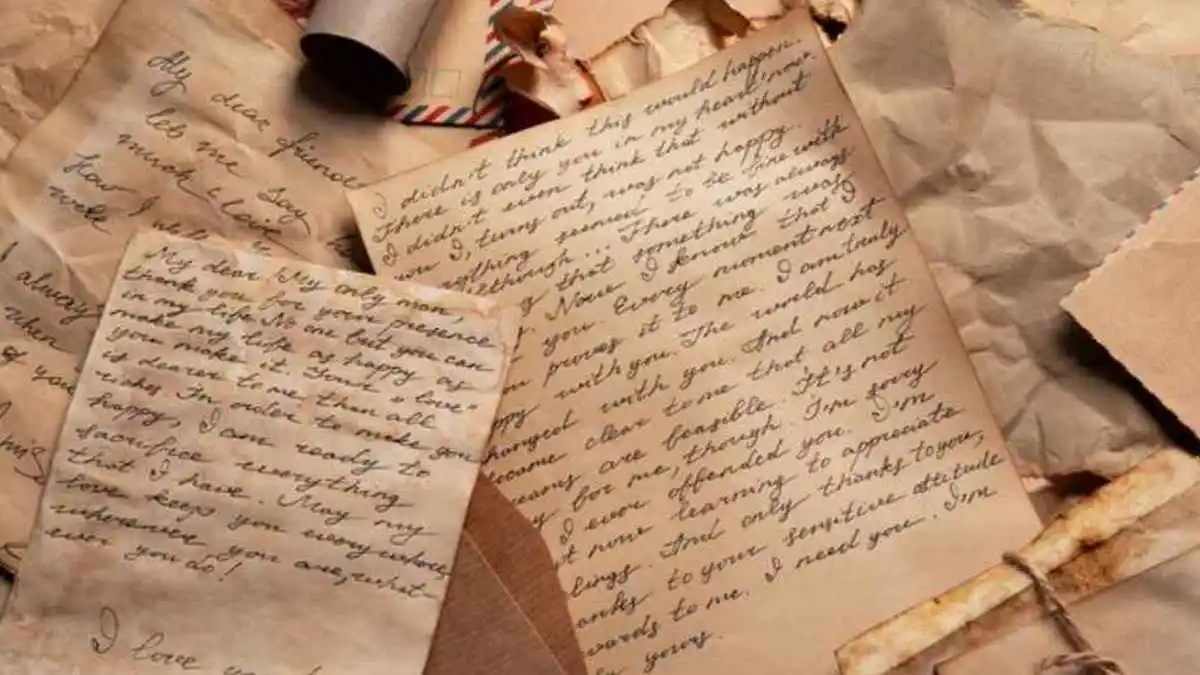 My dear friend
let me say
much I love
How I
I always
When
of you
My dear! My only man,
thank you for your presence
in my life. No one but you can
make my life as happy as
you make it. Your love
is dearer to me than all
riches. In order to make you
happy, I am ready to
sacrifice everything
that I have. May my
love keep you everywhere,
wherever you are, what-
ever you do!
I love you!
I didn't think this would happen.
There is only you in my heart now.
I didn't even think that without
you I, turns out, was not happy.
seemed to be fine with
although... There was always
that something was
Now I know that I
you. Every moment next
proves it to me. I am truly
with you. The world has
changed with you. And now it
become clear to me that all my
are feasible. It's not
for me, though. I'm sorry
I ever offended you. I'm
now learning to appreciate
And only thanks to you,
to your sensitive attitude
towards to me. I need you. I'm
yours.